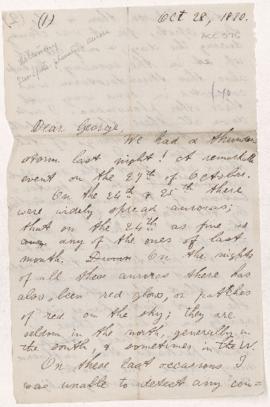 (1)
Oct 28, 1870.
ACC 376
Dear George,
We had a thunder
storm last night! A remarkable
event on the 27th of October.
On the 24th & 25th there
were widely spread auroras;
that on the 24th as fine as
any of the ones of last
month. On the nights
of all these auroras there has
also been red glow, or patches
of red on the sky; they are
seldom in the north, generally in
the south, & sometimes in the W.
On these last occasions I
was unable to detect any con-